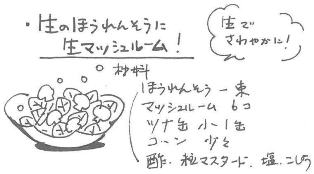 ・生のほうれんそうに
生マッシュルーム!
生で
さわやかに!
材料
ほうれんそう 一束
マッシュルーム 6コ
ツナ缶 小1缶
コーン 少々
酢・粒マスタード・塩・こしょう